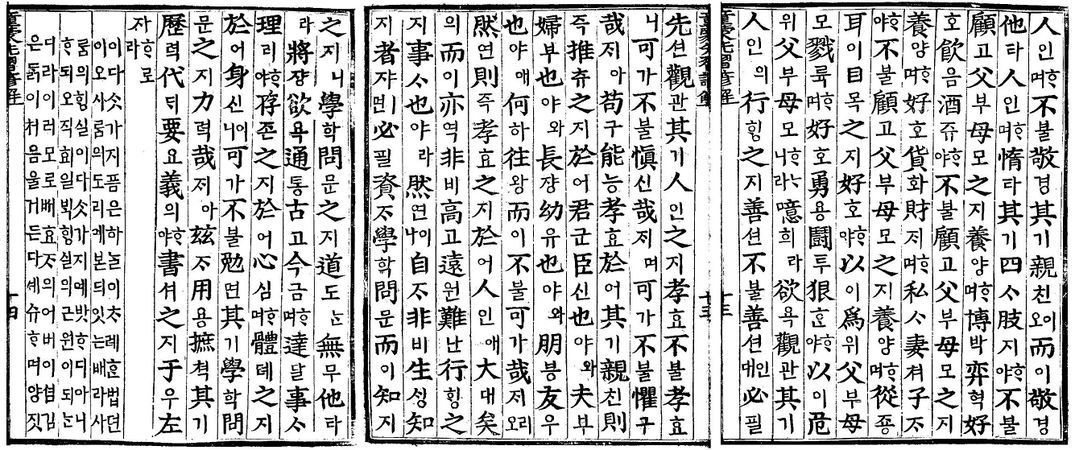 人인ᄒᆞ며不블敬경其기親친이오而이敬경
他타人인ᄒᆞ며惰타其기四ᄉᆞ肢지ᄒᆞ야不블
顧고父부母모之지養양ᄒᆞ며博박弈혁好
호飮음酒쥬ᄒᆞ야不블顧고父부母모之지
養양ᄒᆞ며好호貨화財ᄌᆡᄒᆞ며私ᄉᆞ妻쳐子ᄌᆞ
ᄒᆞ야不블顧고父부母모之지養양ᄒᆞ며從죵
耳이目목之지好호ᄒᆞ야以이爲위父부母
모戮륙ᄒᆞ며好호勇용鬪투狠흔ᄒᆞ야以이危
위父부母모ᄒᆞᄂᆞ니라噫희라欲욕觀관其기
人인의行ᄒᆡᆼ之지善션不블善션인대必필
先션觀관其기人인之지孝효不블孝효
니可가不블愼신哉ᄌᆡ며可가不블懼구
哉ᄌᆡ아苟구能능孝효於어其기親친則
즉推츄之지於어君군臣신也야와夫부
婦부也야와長쟝幼유也야와朋븡友우
也야애何하往왕而이不블可가哉ᄌᆡ리오
然연則즉孝효之지於어人인애大대矣
의而이亦역非비高고遠원難난行ᄒᆡᆼ之
지事ᄉᆞ也야라然연이나自ᄌᆞ非비生ᄉᆡᆼ知
지者쟈ㅣ면必필資ᄌᆞ學학問문而이知지
之지니學학問문之지道도ᄂᆞᆫ無무他타
라將쟝欲욕通통古고今금ᄒᆞ며達달事ᄉᆞ
理리ᄒᆞ야存존之지於어心심ᄒᆞ며體톄之지
於어身신이니可가不블勉면其기學학問
문之지力력哉ᄌᆡ아玆ᄌᆞ用용摭쳑其기
歷력代ᄃᆡ要요義의ᄒᆞ야書셔之지于우左
이다ᄉᆞᆺ가지픔은하ᄂᆞᆯ이ᄎᆞ례ᄒᆞᆫ법뎐
이오사ᄅᆞᆷ의도리예본ᄃᆡ잇ᄂᆞᆫ배라사
ᄅᆞᆷ의ᄒᆡᆼ실이다ᄉᆞᆺ가지예밧디아니
ᄒᆞ되오직효일ᄇᆡᆨᄒᆡᆼ실의근원이되
디라이러모로ᄡᅥ효ᄌᆞ의어버이셤김
은ᄃᆞᆰ이처음울거든다셰슈ᄒᆞ며양짓